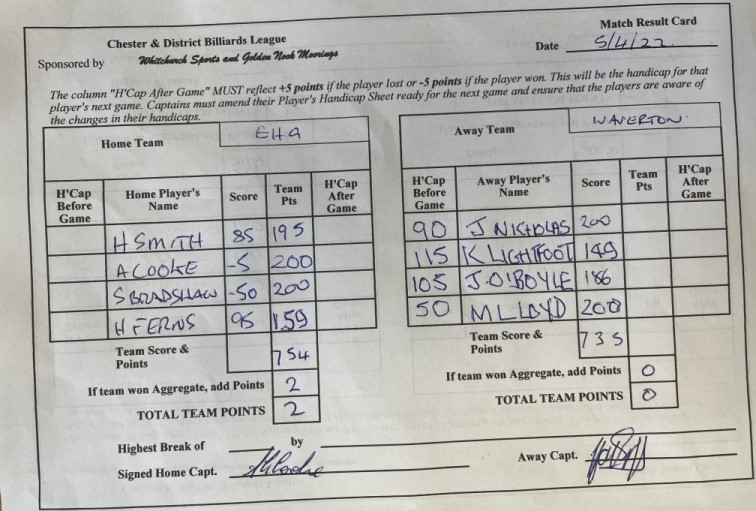 Match Result Card
Chester & District Billiards League
Date 5/4/22
Sponsored by Whitchurch Sports and Golden Nook Moorings
The column "H'Cap After Game" MUST reflect +5 points if the player lost or -5 points if the player won. This will be the handicap for that
player's next game. Captains must amend their Player's Handicap Sheet ready for the next game and ensure that the players are aware of
the changes in their handicaps.
Home Team EHA
Away Team WAVERTON
H'Cap Before Game Home Player's Name Score Team Pts H'Cap After Game
H SMITH 85 195
A COOKE -5 200
S BRADSHAW -50 200
H FERNS 95 159
Team Score & Points 754
If team won Aggregate, add Points 2
TOTAL TEAM POINTS 2
H'Cap Before Game Away Player's Name Score Team Pts H'Cap After Game
90 J NICHOLAS 200
115 K LIGHTFOOT 149
105 J.O'BOYLE 186
50 M LLOYD 200
Team Score & Points 735
If team won Aggregate, add Points 0
TOTAL TEAM POINTS 0
Highest Break of by
Signed Home Capt.
Away Capt.